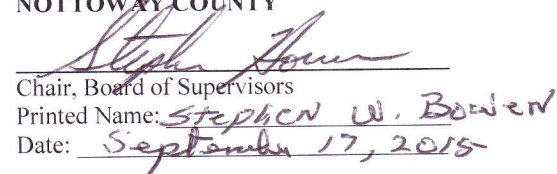 NOTTOWAY COUNTY
Stephen Bowen
Chair, Board of Supervisors
Printed Name: Stephen W. Bowen
Date: September 17, 2015